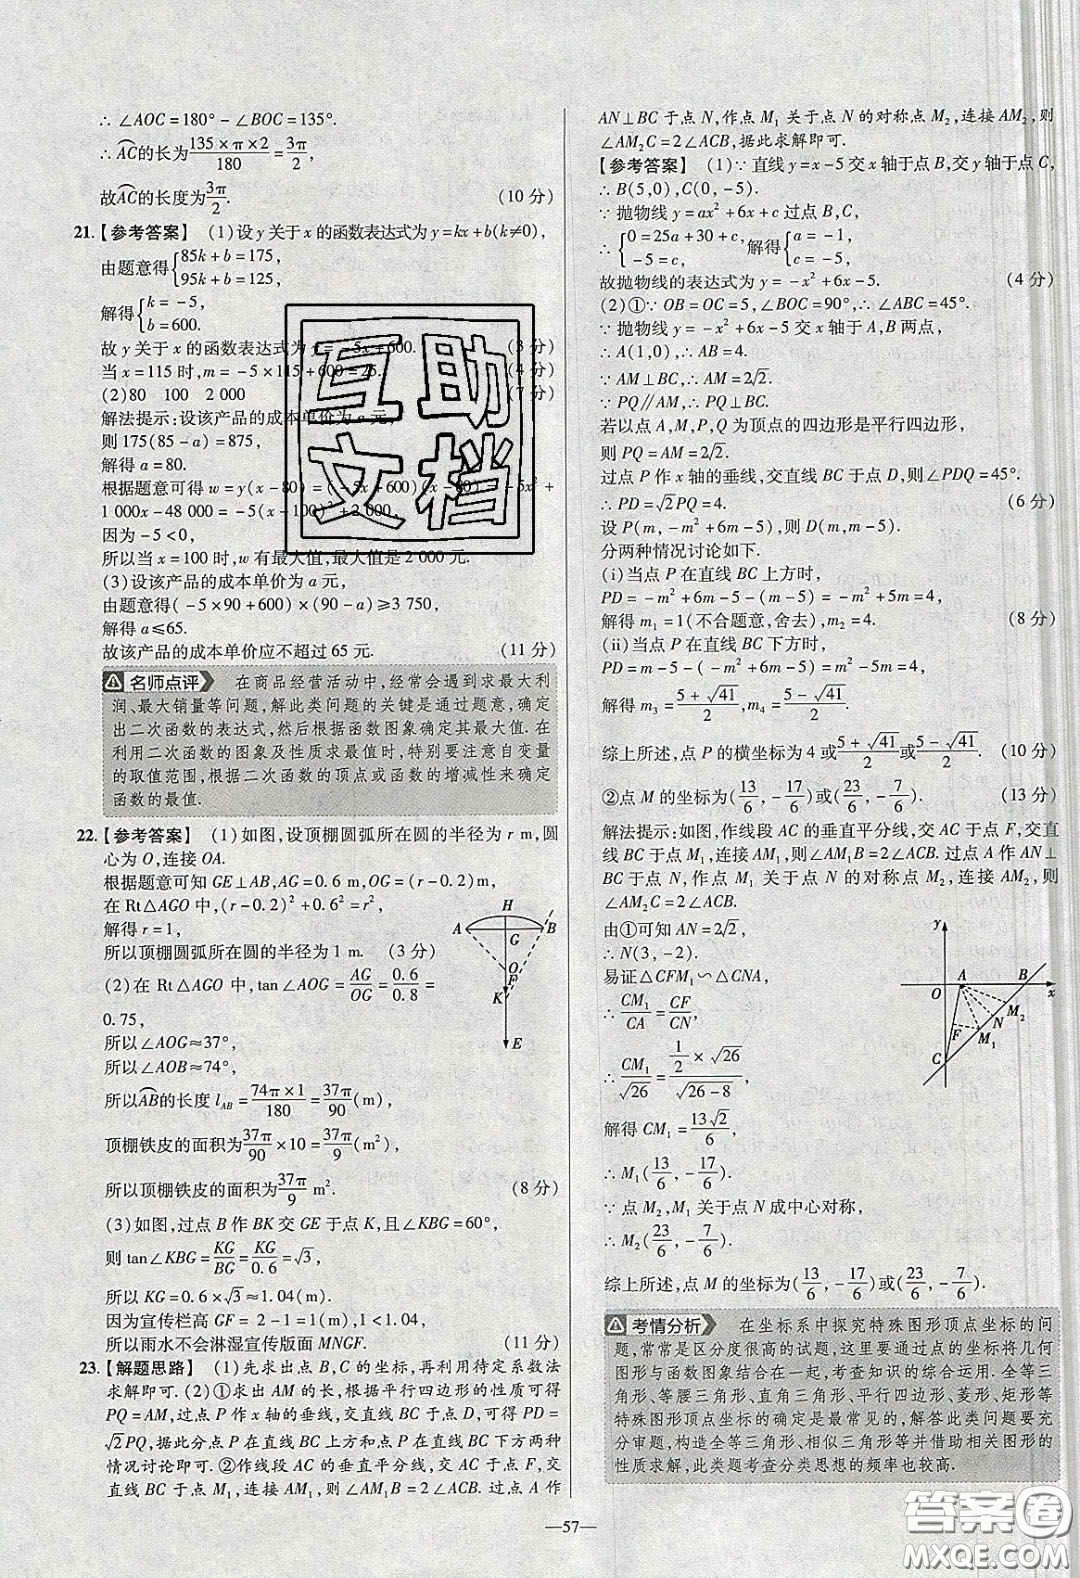 ∴ ∠AOC=180°-∠BOC=135°.
∴ AC⌢的长为135×π×2/180=3π/2,
故AC⌢的长度为3π/2. (10 分)
21.【参考答案】 (1)设 y 关于 x 的函数表达式为 y=kx+b(k≠0),
由题意得{85k+b=175, 95k+b=125,
解得{k=-5, b=600.
故 y 关于 x 的函数表达式为 y=-5x+600. (3 分)
当 x=115 时,m=-5×115+600=25. (4 分)
(2)80 100 2 000 (7 分)
解法提示:设该产品的成本单价为 a 元,
则 175(85-a)=875,
解得 a=80.
根据题意可得 w=y(x-80)=(-5x+600)(x-80)=-5x²+
1 000x-48 000=-5(x-100)²+2 000.
因为-5<0,
所以当 x=100 时,w 有最大值,最大值是 2 000 元.
(3)设该产品的成本单价为 a 元,
由题意得(-5×90+600)×(90-a)≥3 750,
解得 a≤65.
故该产品的成本单价应不超过 65 元. (11 分)
名师点评 在商品经营活动中,经常会遇到求最大利
润、最大销量等问题,解此类问题的关键是通过题意,确定
出二次函数的表达式,然后根据函数图象确定其最大值.在
利用二次函数的图象及性质求最值时,特别要注意自变量
的取值范围,根据二次函数的顶点或函数的增减性来确定
函数的最值.
22.【参考答案】 (1)如图,设顶棚圆弧所在圆的半径为 r m,圆
心为 O,连接 OA.
根据题意可知 GE⊥AB,AG=0.6 m,OG=(r-0.2)m,
在 Rt△AGO 中,(r-0.2)²+0.6²=r²,
解得 r=1,
所以顶棚圆弧所在圆的半径为 1 m. (3 分)
(2)在 Rt△AGO 中,tan∠AOG=AG/OG=0.6/0.8=
0.75,
所以∠AOG≈37°,
所以∠AOB≈74°,
所以AB⌢的长度 l_AB=74π×1/180=37π/90(m),
顶棚铁皮的面积为37π/90×10=37π/9(m²),
所以顶棚铁皮的面积为37π/9 m². (8 分)
(3)如图,过点 B 作 BK 交 GE 于点 K,且∠KBG=60°,
则 tan∠KBG=KG/BG=KG/0.6=√3,
所以 KG=0.6×√3≈1.04(m).
因为宣传栏高 GF=2-1=1(m),1<1.04,
所以雨水不会淋湿宣传版面 MNGF. (11 分)
H
A G B
O
F
K
E
23.【解题思路】 (1)先求出点 B,C 的坐标,再利用待定系数法
求解即可.(2)①求出 AM 的长,根据平行四边形的性质可得
PQ=AM,过点 P 作 x 轴的垂线,交直线 BC 于点 D,可得 PD=
√2PQ,据此分点 P 在直线 BC 上方和点 P 在直线 BC 下方两种
情况讨论即可.②作线段 AC 的垂直平分线,交 AC 于点 F,交
直线 BC 于点 M₁,连接 AM₁,则∠AM₁B=2∠ACB.过点 A 作
AN⊥BC 于点 N,作点 M₁ 关于点 N 的对称点 M₂,连接 AM₂,则
∠AM₂C=2∠ACB,据此求解即可.
【参考答案】 (1)∵ 直线 y=x-5交 x轴于点 B,交 y轴于点 C,
∴ B(5,0),C(0,-5).
∵ 抛物线 y=ax²+6x+c 过点 B,C,
∴ {0=25a+30+c, -5=c, 解得{a=-1, c=-5.
故抛物线的表达式为 y=-x²+6x-5. (4 分)
(2)①∵ OB=OC=5,∠BOC=90°,∴ ∠ABC=45°.
∵ 抛物线 y=-x²+6x-5 交 x 轴于 A,B 两点,
∴ A(1,0),∴ AB=4.
∵ AM⊥BC,∴ AM=2√2.
∵ PQ∥AM,∴ PQ⊥BC.
若以点 A,M,P,Q 为顶点的四边形是平行四边形,
则 PQ=AM=2√2.
过点 P 作 x 轴的垂线,交直线 BC 于点 D,则∠PDQ=45°.
∴ PD=√2PQ=4. (6 分)
设 P(m,-m²+6m-5),则 D(m,m-5).
分两种情况讨论如下.
(ⅰ)当点 P 在直线 BC 上方时,
PD=-m²+6m-5-(m-5)=-m²+5m=4,
解得 m₁=1(不合题意,舍去),m₂=4. (8 分)
(ⅱ)当点 P 在直线 BC 下方时,
PD=m-5-(-m²+6m-5)=m²-5m=4,
解得 m₃=(5+√41)/2,m₄=(5-√41)/2.
综上所述,点 P 的横坐标为 4 或(5+√41)/2或(5-√41)/2. (10 分)
②点 M 的坐标为(13/6,-17/6)或(23/6,-7/6). (13 分)
解法提示:如图,作线段 AC 的垂直平分线,交 AC 于点 F,交直
线 BC 于点 M₁,连接 AM₁,则∠AM₁B=2∠ACB.过点 A 作 AN⊥
BC 于点 N,作点 M₁ 关于点 N 的对称点 M₂,连接 AM₂,则
∠AM₂C=2∠ACB.
由①可知 AN=2√2,
∴ N(3,-2).
易证△CFM₁∽△CNA,
∴ CM₁/CA=CF/CN,
∴ CM₁/√26=(1/2×√26)/√(26-8),
解得 CM₁=13√2/6,
∴ M₁(13/6,-17/6).
∵ 点 M₁,M₂ 关于点 N 成中心对称,
∴ M₂(23/6,-7/6).
综上所述,点 M 的坐标为(13/6,-17/6)或(23/6,-7/6).
y
O A B x
F M₁ N M₂
C
考情分析 在坐标系中探究特殊图形顶点坐标的问
题,常常是区分度很高的试题,这里要通过点的坐标将几何
图形与函数图象结合在一起,考查知识的综合运用.全等三
角形、等腰三角形、直角三角形、平行四边形、菱形、矩形等
特殊图形顶点坐标的确定是最常见的,解答此类问题要充
分审题,构造全等三角形、相似三角形等并借助相关图形的
性质求解,此类题考查分类思想的频率也较高.
互助
文档
—57—
答案圈
MXQE.COM